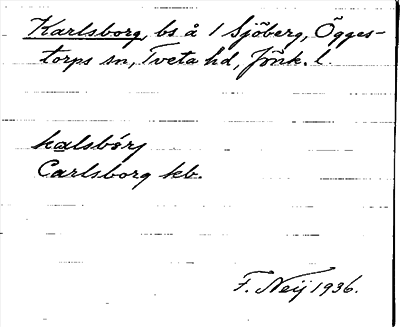 Karlsborg, bs å 1 Sjöberg, Ögges-
torps sn, Tveta hd, Jönk. l.
kalsbórj
Carlsborg kb.
F. Neij 1936.